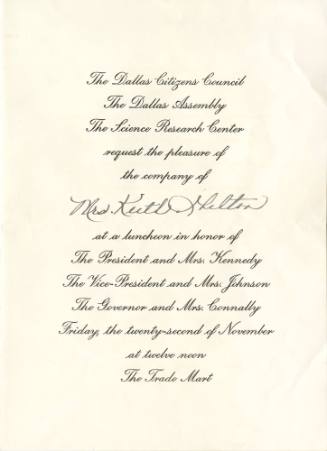 The Dallas Citizens Council
The Dallas Assembly
The Science Research Center
request the pleasure of
the company of
Mrs. Keith Shelton
at a luncheon in honor of
The President and Mrs. Kennedy
The Vice-President and Mrs. Johnson
The Governor and Mrs. Connally
Friday, the twenty-second of November
at twelve noon
The Trade Mart